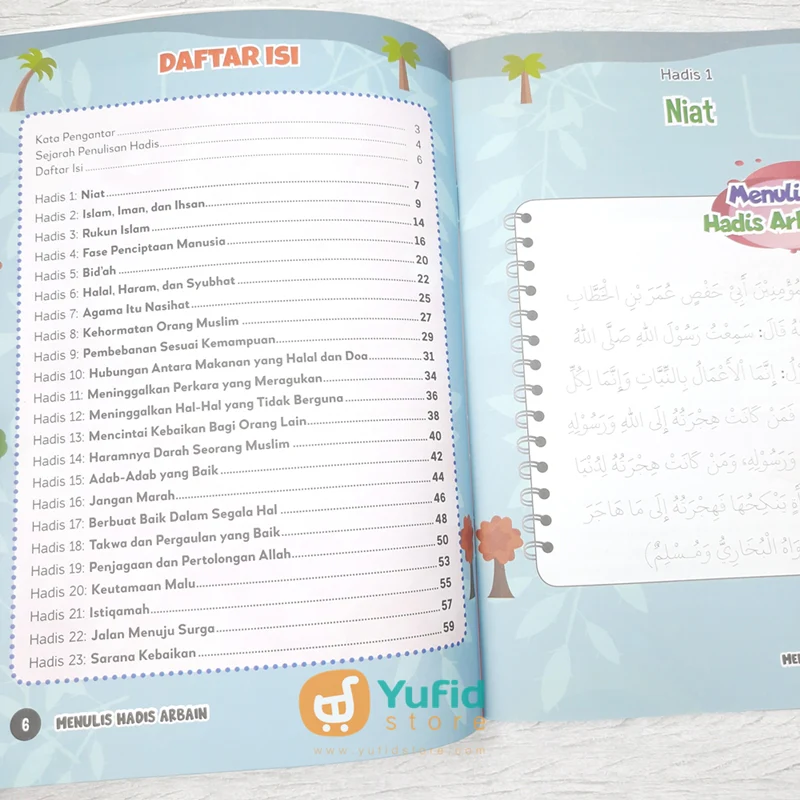 DAFTAR ISI
Kata Pengantar 3
Sejarah Penulisan Hadis 4
Daftar Isi 6
Hadis 1: Niat 7
Hadis 2: Islam, Iman, dan Ihsan 9
Hadis 3: Rukun Islam 14
Hadis 4: Fase Penciptaan Manusia 16
Hadis 5: Bid'ah 20
Hadis 6: Halal, Haram, dan Syubhat 22
Hadis 7: Agama Itu Nasihat 25
Hadis 8: Kehormatan Orang Muslim 27
Hadis 9: Pembebanan Sesuai Kemampuan 29
Hadis 10: Hubungan Antara Makanan yang Halal dan Doa 31
Hadis 11: Meninggalkan Perkara yang Meragukan 34
Hadis 12: Meninggalkan Hal-Hal yang Tidak Berguna 36
Hadis 13: Mencintai Kebaikan Bagi Orang Lain 38
Hadis 14: Haramnya Darah Seorang Muslim 40
Hadis 15: Adab-Adab yang Baik 42
Hadis 16: Jangan Marah 44
Hadis 17: Berbuat Baik Dalam Segala Hal 46
Hadis 18: Takwa dan Pergaulan yang Baik 48
Hadis 19: Penjagaan dan Pertolongan Allah 50
Hadis 20: Keutamaan Malu 53
Hadis 21: Istiqamah 55
Hadis 22: Jalan Menuju Surga 57
Hadis 23: Sarana Kebaikan 59
6 MENULIS HADIS ARBAIN
Hadis 1
Niat
Menulis
Hadis Ar
أَبِيْ حَفْصٍ عُمَرَ بْنِ الْخَطَّابِ
قَالَ: سَمِعْتُ رَسُوْلَ اللهِ صَلَّى اللهُ
إِنَّمَا الْأَعْمَالُ بِالنِّيَّاتِ وَإِنَّمَا لِكُلِّ
فَمَنْ كَانَتْ هِجْرَتُهُ إِلَى اللهِ وَرَسُوْلِهِ
وَرَسُوْلِهِ، وَمَنْ كَانَتْ هِجْرَتُهُ لِدُنْيَا
يَنْكِحُهَا فَهِجْرَتُهُ إِلَى مَا هَاجَرَ
الْبُخَارِيُّ وَمُسْلِمٌ)
Yufid
store
www.yufidstore.com